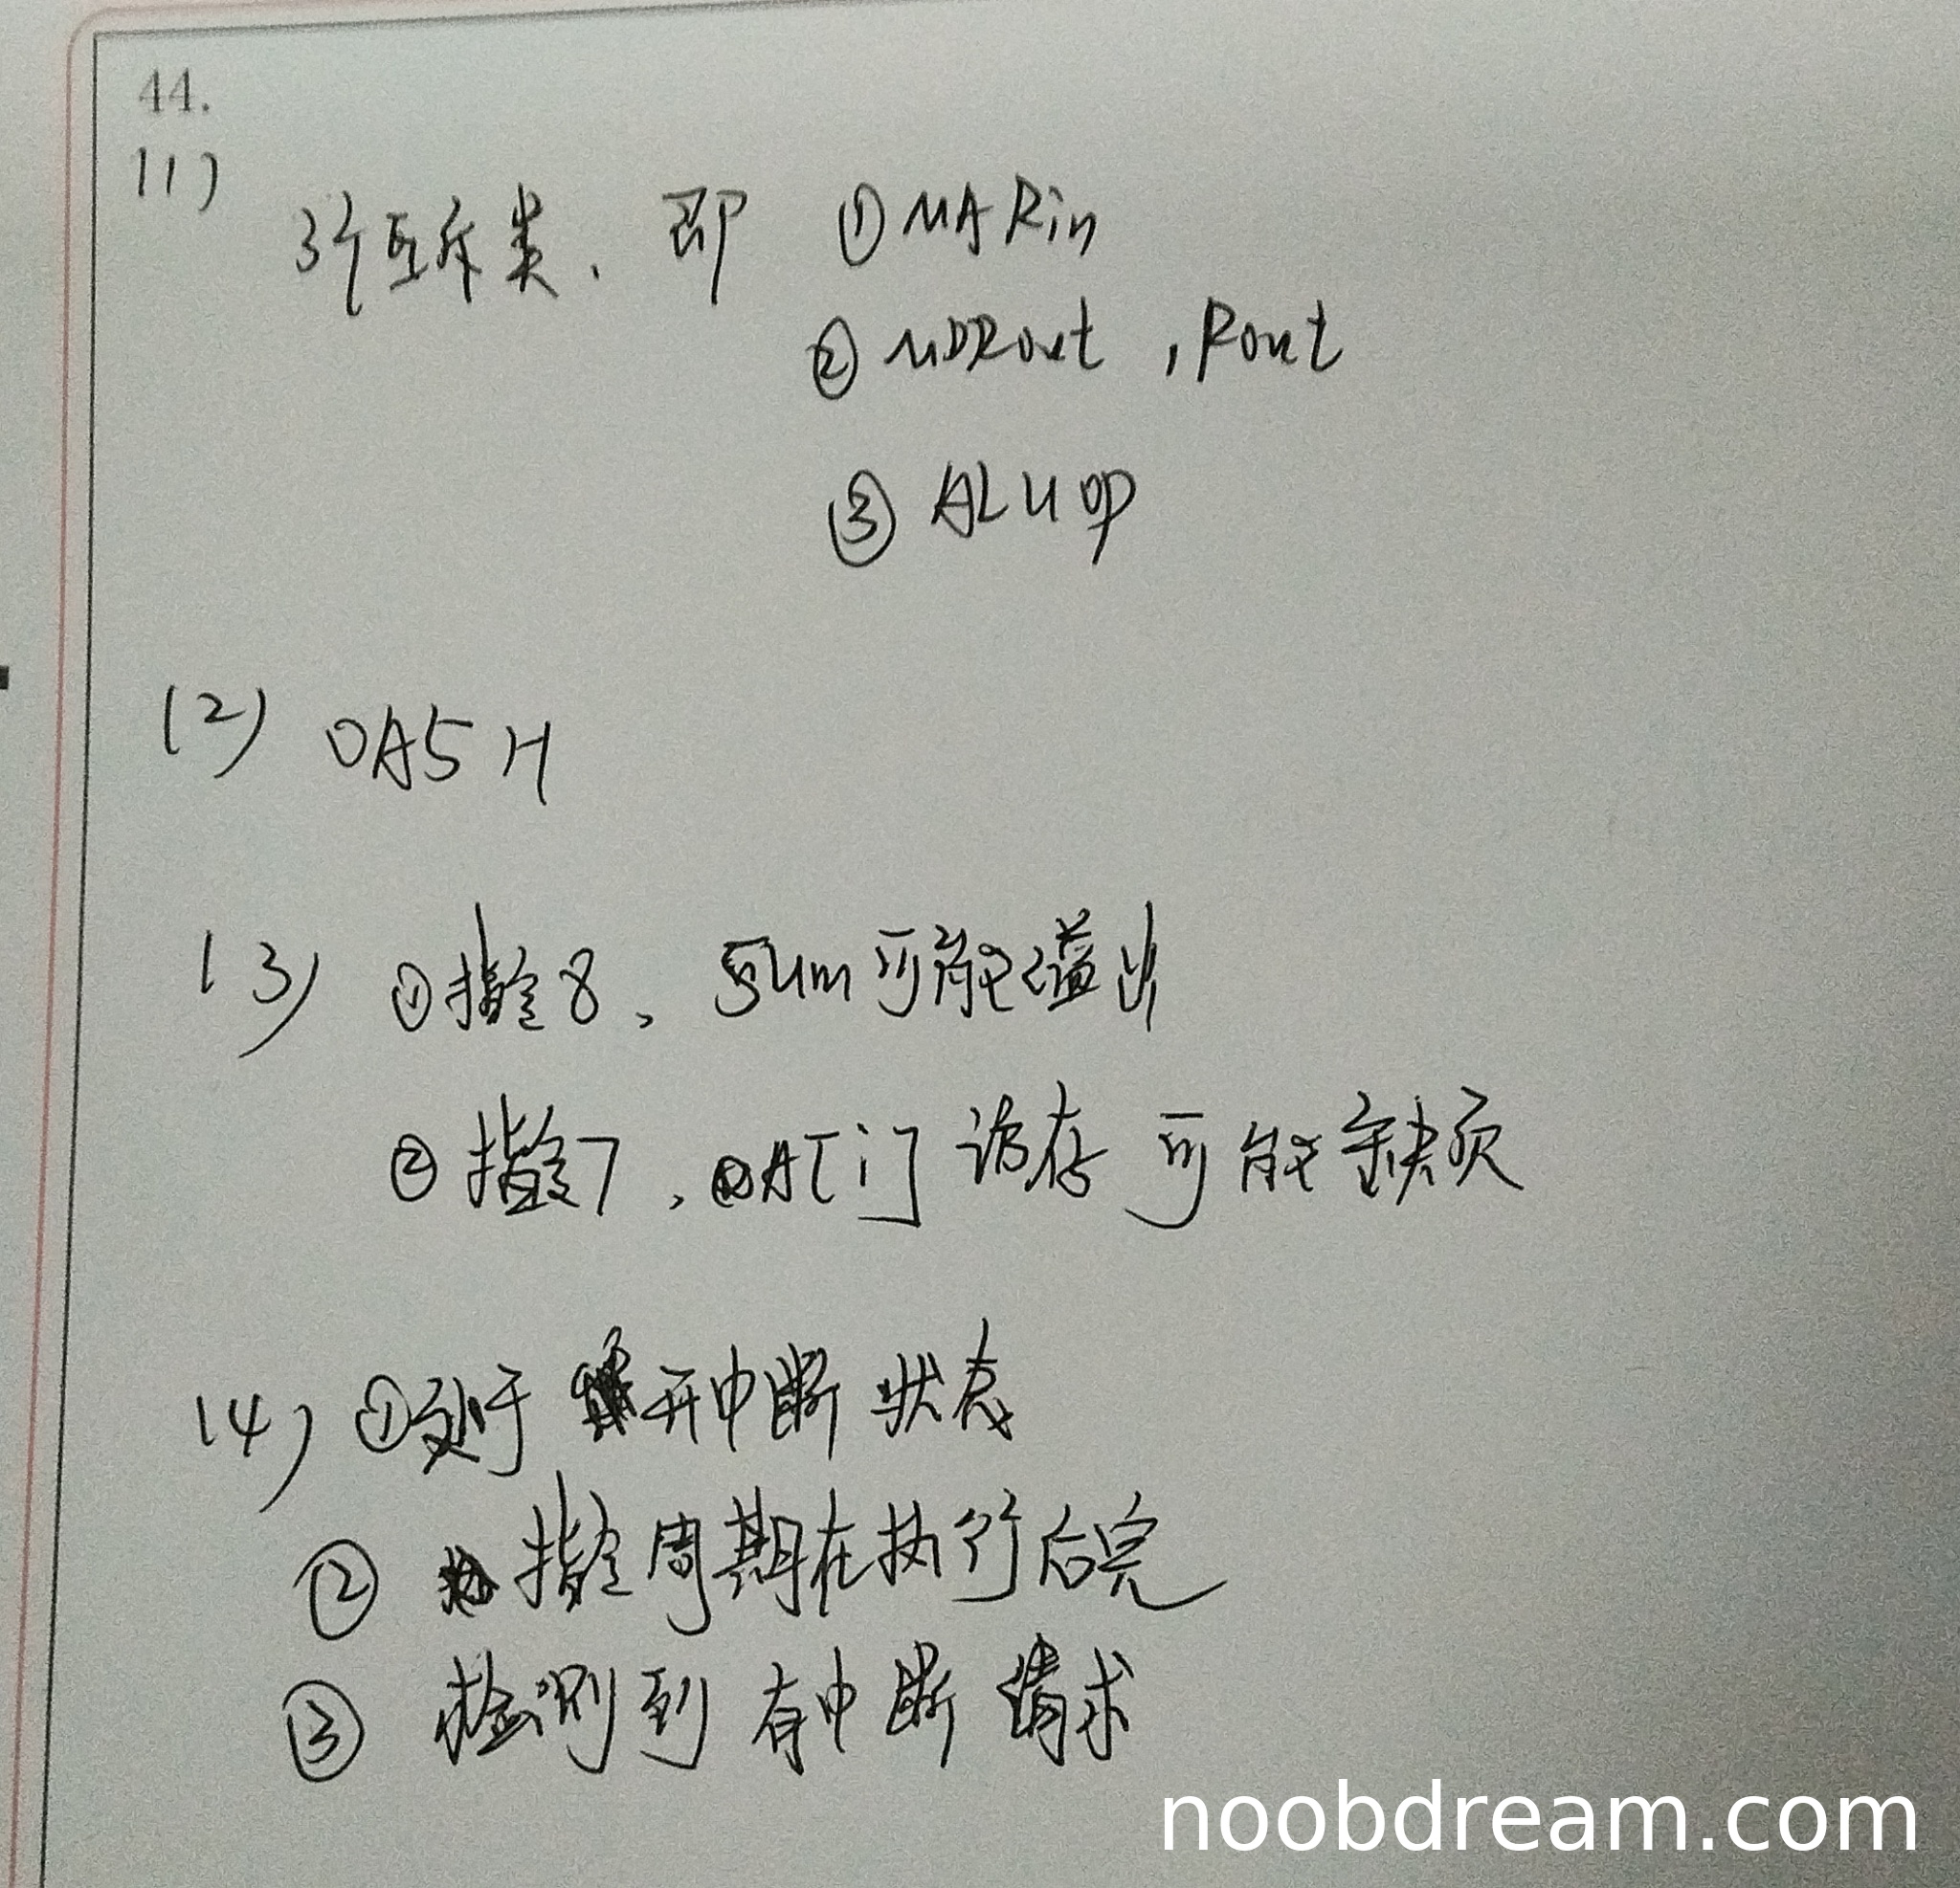 44.
(1)
3个互斥类、即 ① MARin
② MDRout , Rout
③ ALUop
(2) 0A5H
(3) ①指令8、sum可能溢出
②指令7、A[i] 访存可能缺页
(4) ①处于开中断状态
② 指令周期在执行后完
③ 检测到有中断请求
noobdream.com